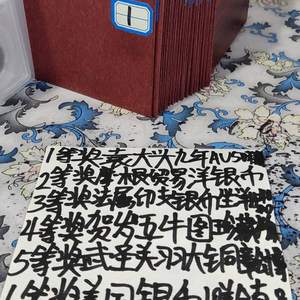 1
1等奖袁大头九年AU5
2等奖摩根贸易洋银币
3等奖法属印支银币坐洋
4等奖贺岁五牛图珍藏
5等奖武圣关羽大铜章
等奖美国银币